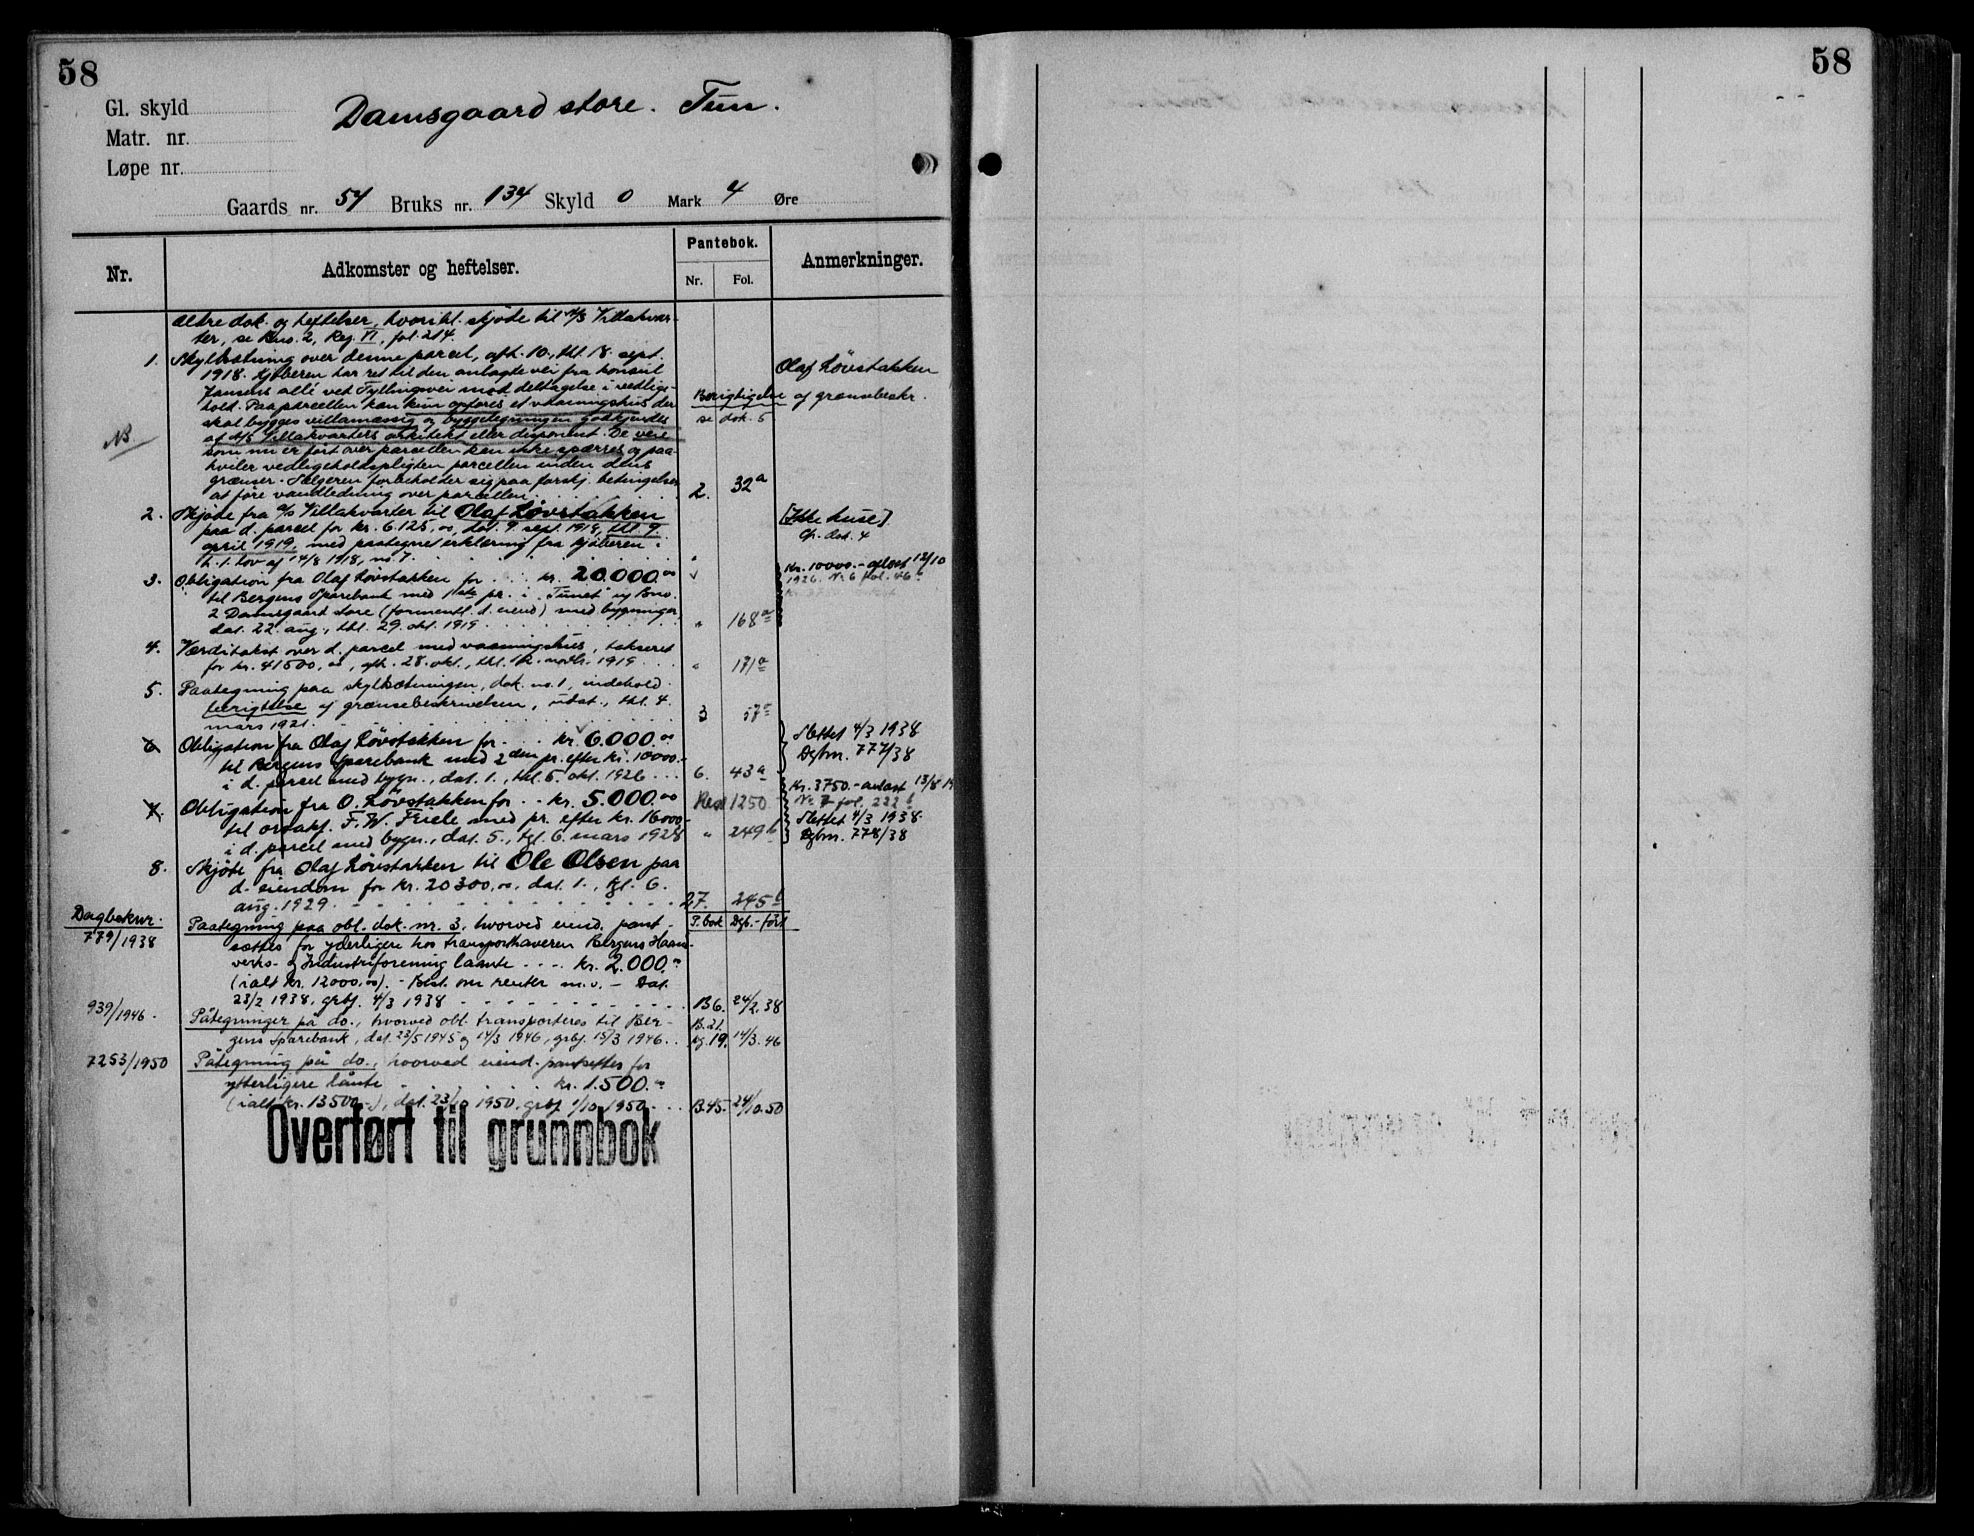 58
Gl. skyld
Damsgaard store. Tun.
Matr. nr.
Løpe nr.
Gaards nr. 54 Bruks nr. 134 Skyld 0 Mark 4 Øre
Nr. Adkomster og heftelser. Pantebok. Nr. Fol. Anmerkninger.
Ældre dok. og heftelser, hvoribl. skjøde til A/S Villakvar-
ter, se Bno. 2, Reg. VI, fol. 214.
1. Skylddætning over denne parcel, afh. 10., thl. 18. sept.
1918. Kjøberen har ret til den anlagte vei fra konsul
Jansens allé ved Fyllingsvei mod deltagelse i vedlige-
hold. Paa parcellen kan kun opføres et vaaningshus der
skal bygges villamæssig og byggetegningen godkjendes
af A/S Villakvarters arkitekt eller disponent. De veie
som nu er ført over parcellen kan ikke spærres og paa-
hviler vedligeholdspligten parcellen inden dens
grænser. Sælgeren forbeholder sig paa forskj. betingelser
at føre vandledning over parcellen. 2. 32a
Olaf Løvstakken
Berigtigelse af grænsebeskr.
se dok. 5
NB
2. Skjøde fra A/S Villakvarter til Olaf Løvstakken
paa d. parcel for kr. 6.125,00, dat. 9. sept. 1919, thl. 9.
april 1919, med paategnet erklæring fra kjøberen i
h. t. lov af 14/8 1918, no. 7. "
[Ikke huse]
Cfr. dok. 4
3. Obligation fra Olaf Løvstakken for kr. 20.000.00
til Bergens Sparebank med 1ste pr. i "Tunet" og Bno.
2 Damsgaard store (formentl. d. eiend.) med bygninger,
dat. 22. aug., thl. 29. okt. 1919 " 168a
Kr. 10000.- avlæst 12/10
1926. Nr. 6 fol. 46b
4. Værditakst over d. parcel med vaaningshus, takseret
for kr. 41500,00, afh. 28. okt., thl. 12. novbr. 1919 " 171a
5. Paategning paa skyldsætningen, dok. no. 1, indehold.
berigtelse af grænsebeskrivelsen, udat., thl. 4.
mars 1921. 3 57a
6. Obligation fra Olaf Løvstakken for kr. 6.000.00
til Bergens Sparebank med 2den pr. efter kr. 10000.-
i d. parcel med bygn., dat. 1., thl. 5. okt. 1926 6. 43a
Slettet 4/3 1938
Dgbnr. 777/38
7. Obligation fra O. Løvstakken for kr. 5.000.00
til orsakf. F. W. Friele med pr. efter kr. 16000.-
i d. parcel med bygn., dat. 5., tgl. 6. mars 1928 " 249b
Kr. 3750.- avlæst 13/8
Nr. 7 fol. 222b
Slettet 4/3 1938.
Dgbnr. 778/38
8. Skjøte fra Olaf Løvstakken til Ole Olsen paa
d. eiendom for kr. 20300,00, dat. 1., tgl. 6.
aug. 1929 27. 245b
Dagboknr.
779/1938
P.bok Dgb.-ført
Paategning paa obl. dok. nr. 3, hvorved eiend. pant-
sættes for yderligere hos transporthaveren Bergens Haand-
verks- og Industriforening laante kr. 2.000.00
(ialt kr. 12000,00). - Best. om renter m.v. - Dat.
23/2 1938, grbf. 4/3 1938 B6. 24/2.38
939/1946. Påtegninger på do., hvorved obl. transporteres til Ber- B.21.
gens Sparebank, dat. 23/5 1945 og 14/3 1946, grbf. 15/3 1946. og 19. 14/3.46
7253/1950 Påtegning på do., hvorved eiend. pantsettes for
ytterligere lånte kr. 1.500.00
(ialt kr. 13500.-), dat. 23/10 1950, grbf. 1/10 1950 B.45. 24/10.50
Overført til grunnbok
58